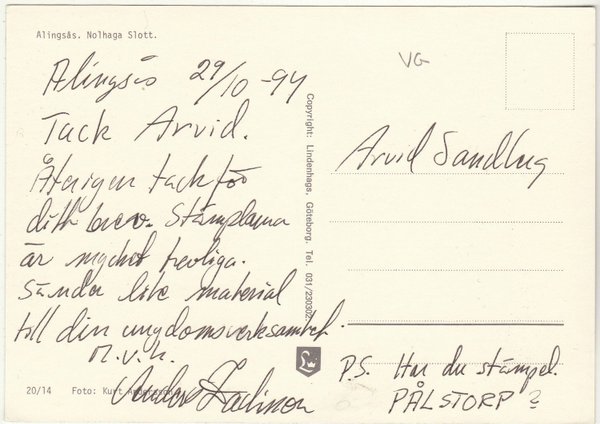 Alingsås. Nolhaga Slott.
VG
Alingsås 29/10 -94
Tack Arvid.
Återigen tack för
ditt brev. Stämplarna
är mycket trevliga.
Sänder lite material
till din ungdomsverksamhet.
M.V.H.
Copyright: Lindenhags. Göteborg. Tel. 031/230302
Arvid Sandberg
P.S. Har du stämpel.
PÅLSTORP?
20/14 Foto: Kurt